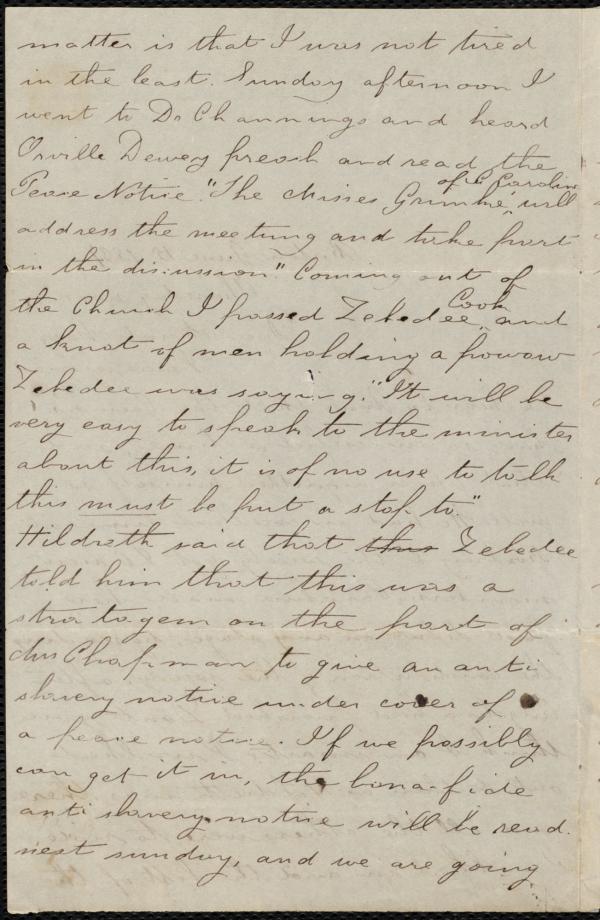 matter is that I was not tired
in the least. Sunday afternoon I
went to Dr Channings and heard
Orville Dewey preach and read the
Peace Notice. "The Misses Grimké of S. Carolina will
address the meeting and take part
in the discussion." Coming out of
the Church I passed Zebedee Cook and
a knot of men holding a powow
Zebedee was saying, "It will be
very easy to speak to the minister
about this, it is of no use to talk
this must be put a stop to."
Hildreth said that this Zebedee
told him that this was a
stratagem on the part of
Mrs Chapman to give an anti
slavery notice under cover of
a peace notice. If we possibly
can get it in, the bona-fide
anti slavery notice will be read
next sunday, and we are going